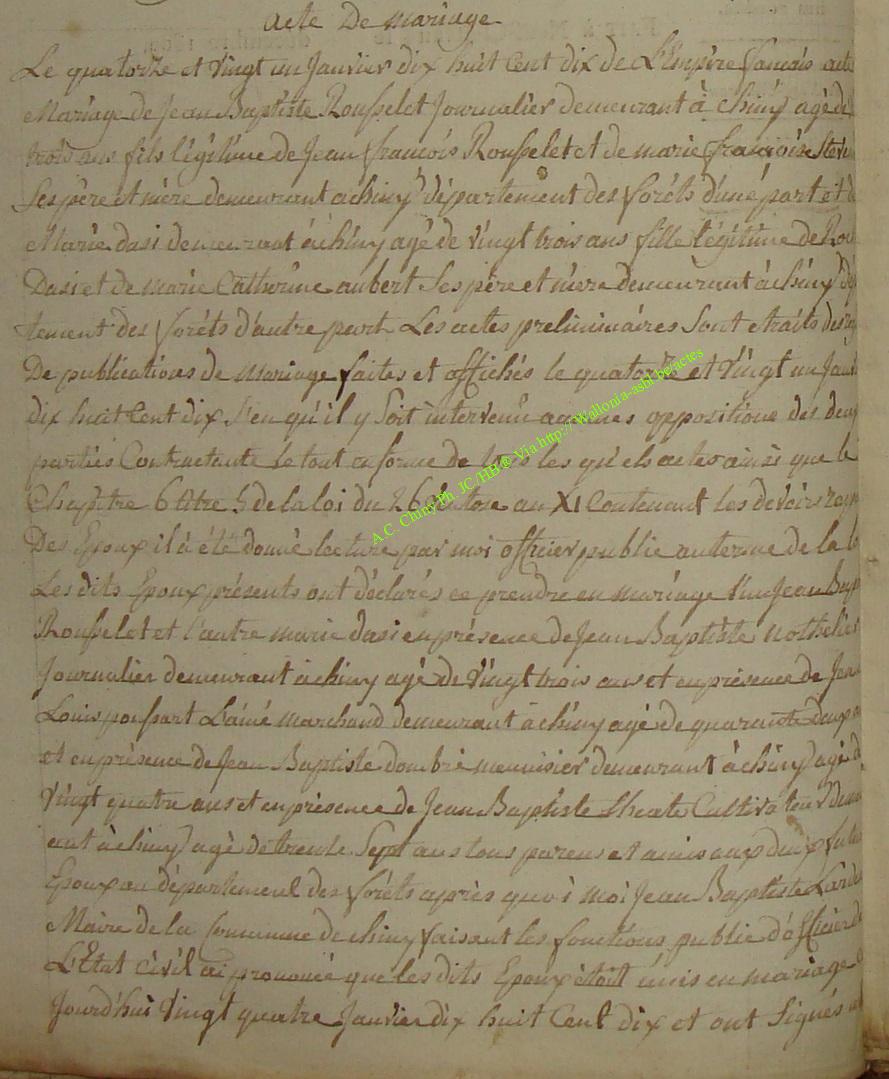 acte De mariage
Le quatorze et vingt un Janvier dix huit Cent dix de L'Empire francais acte
Mariage de Jean Baptiste Rousselet Journalier demeurant à chiny agé de
trois ans fils légitime de Jean francois Rousselet et de marie francoise
Ses père et mère demeurant a chiny département des forêts d'une part et d
Marie dasi demeurant à chiny agé de Vingt trois ans fille légitime de
Dasi et de marie Catherine aubert Ses père et mere demeurant à chiny
tement des forêts d'autre part Les actes preliminaires Sont etraits des
De publications de Mariage faites et affichés le quatorze et Vingt un
dix huit Cent dix S'en qu'il y Soit intervenu aucunes oppositions des deux
partiés Contractante le tout en forme de les qu'els actes ainsi que le
Chapitre 6 titre 5 de la loi du 26 an XI Contenant les devoirs
Des Epoux il à été donné lecture par moi officier public au terme de la
Les dits Epoux présents ont déclarés ce prendre en mariage l'un Jean
Rousselet et l'autre marie dasi en présence de Jean Baptiste
Journalier demeurant à chiny agé de Vingt trois ans et en présence de
Louis poussart L'ainé marchand demeurant à chiny agé de quarante deux
et en présence de Jean Baptiste dombré meunisier demeurant à chiny agé d
Vingt quatre ans et en présence de Jean Baptiste Cultivateur
ant à chiny agé de trente Sept ans tous parens et amis aux deux
Epoux au département des forêts après quoi moi Jean Baptiste
Maire de la Commune de chiny faisant les fonctions public d'officier de
L'Etat civil ai prononcé que les dits Epoux étoit unis en mariage
Jourd'hui Vingt quatre Janvier dix huit Cent dix et ont Signés
A.C. Chiny Ph. JC /HB @ Via http://Wallonia-asbl-be/actes